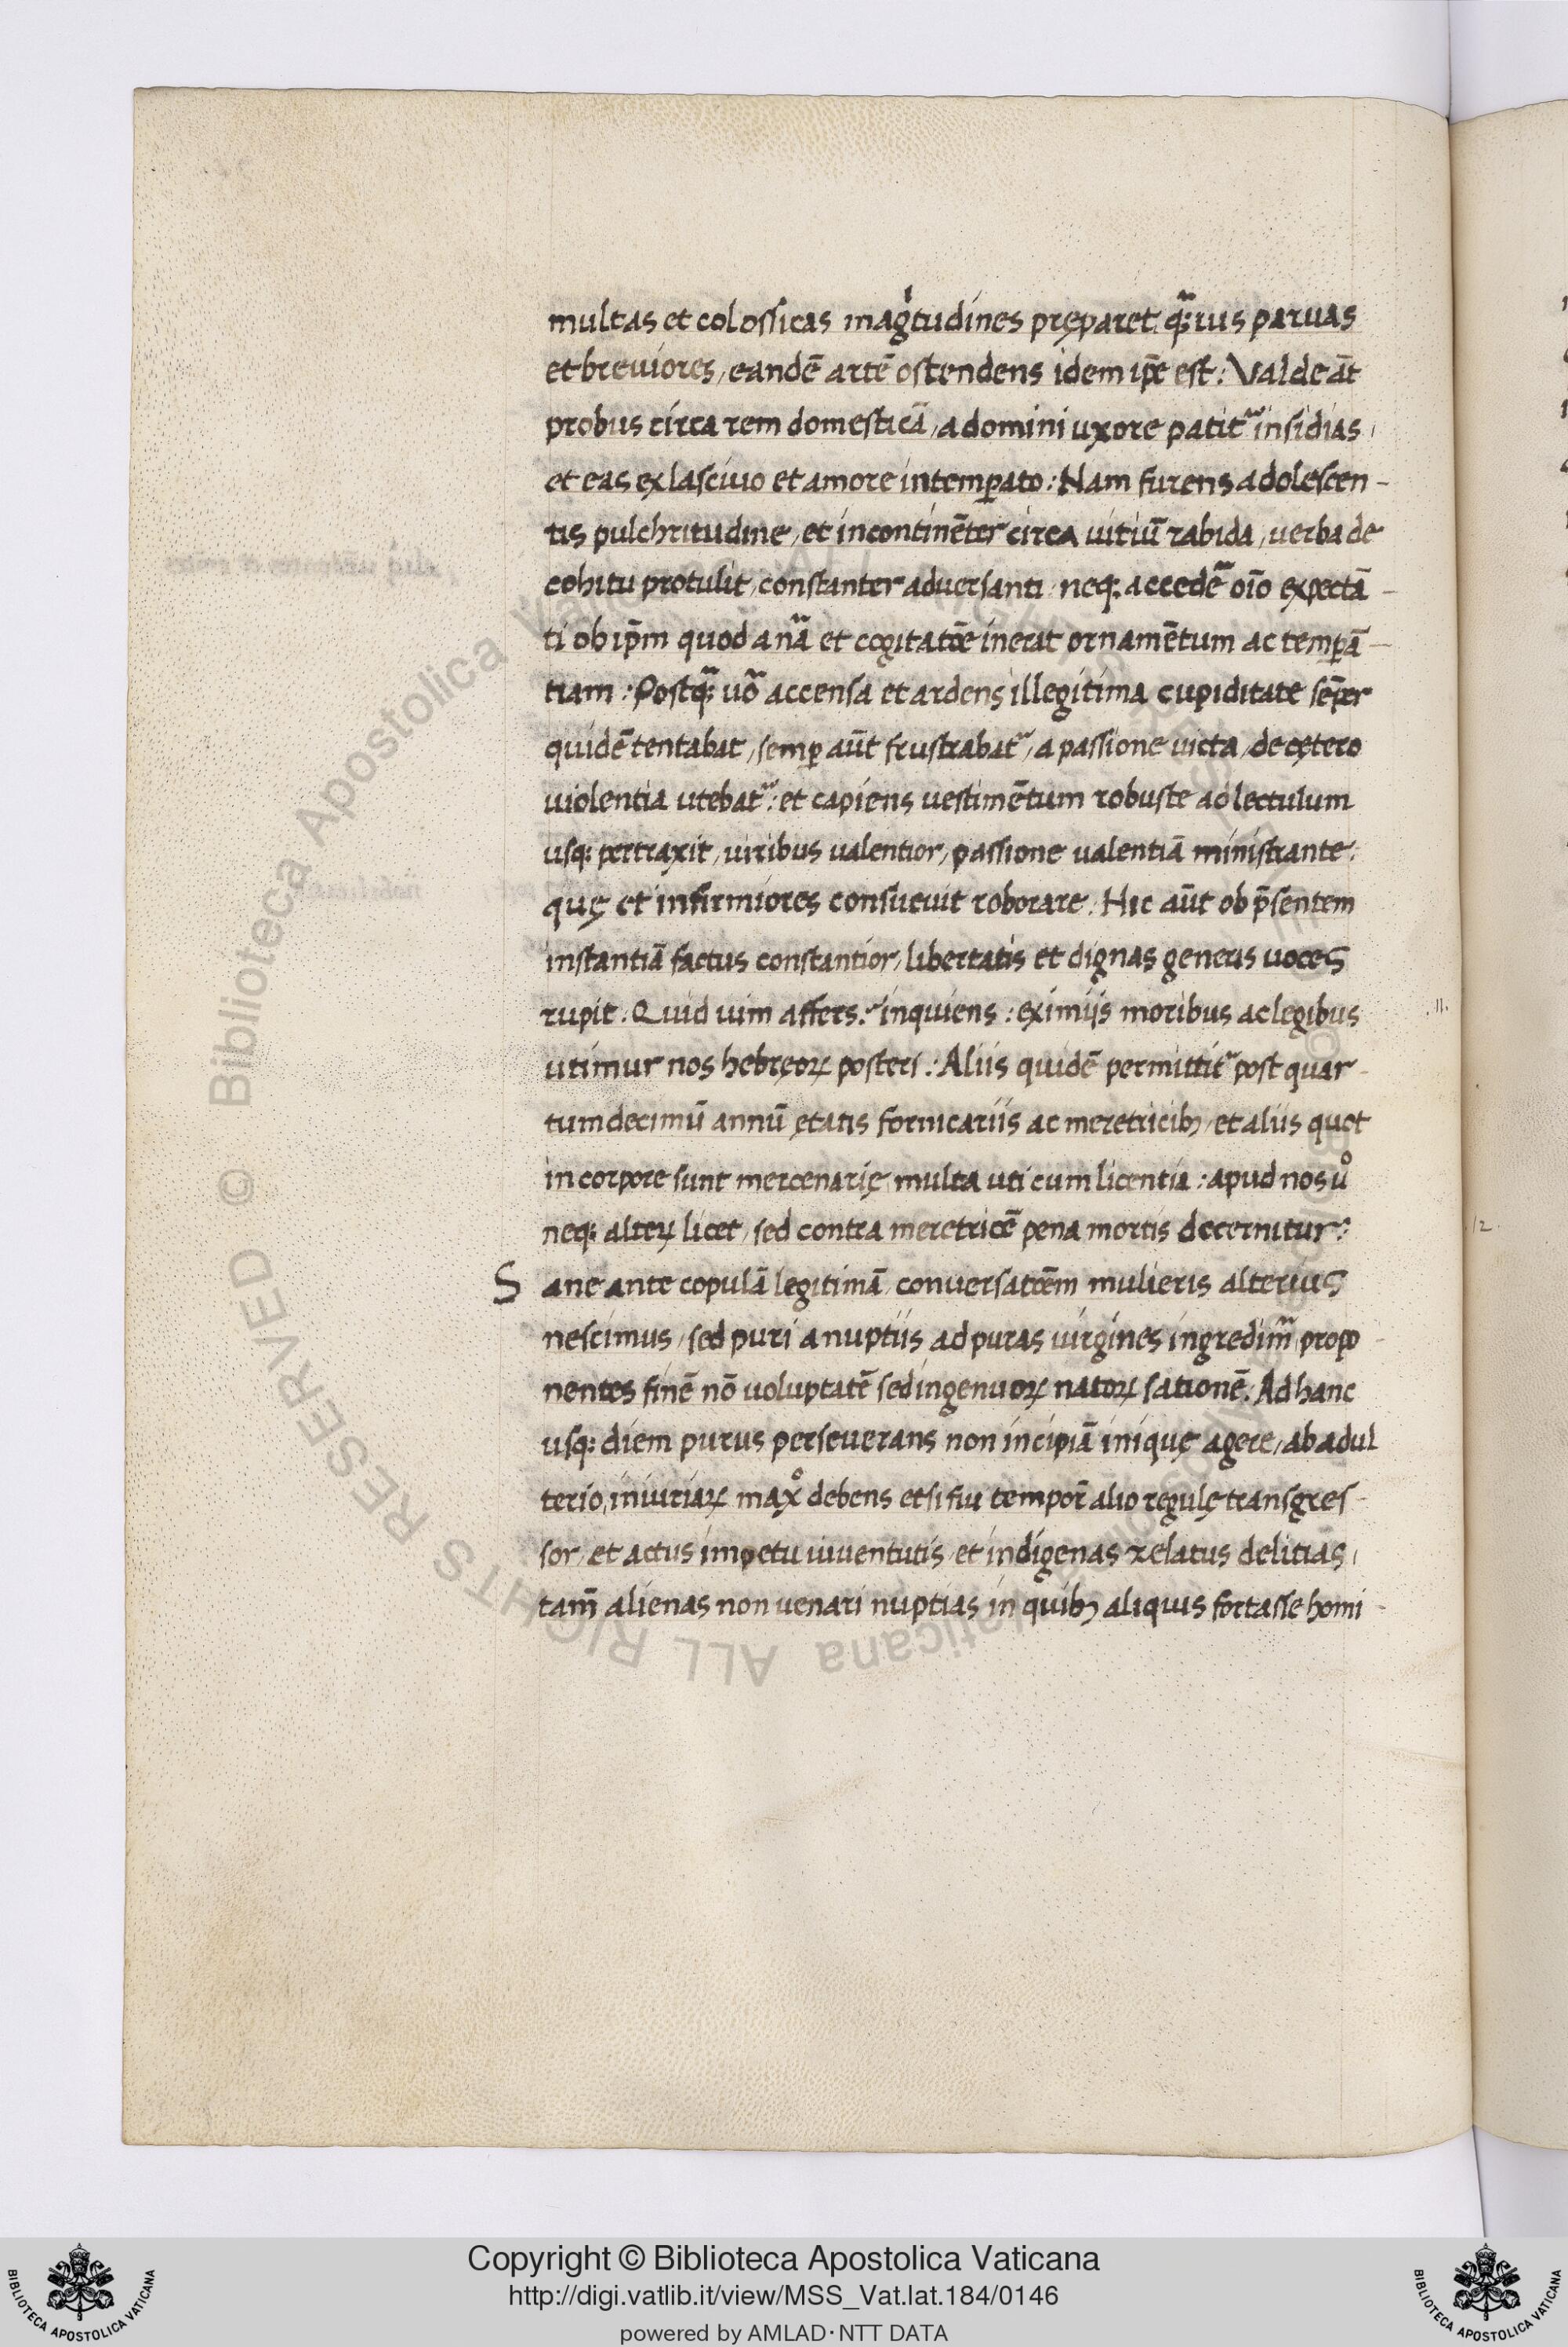 multas et colossicas magͥtudines pręparet. qᷓ; rus paruas
et breuiores, eandē artē ostendens idem ip̄e est: Valde āt
probus circa rem domesticā, a domini uxore patit᷑ insidias,
et eas ex lasciuo et amore intemꝑato: Nam furens adolescen-
tis pulchritudine, et incontinēter circa uitiū rabida, uerba de
cohitu protulit, constanter aduersanti neq; accedē oīo expectā-
ti ob ip̄m quod anᷓ et cogitatōe inerat ornamētum ac temꝑā-
tiam: Postqᷓ; uō accensa et ardens illegitima cupiditate sēper
quidē tentabat, semꝑ aūt frustrabat᷑, a passione uicta, de cętero
uiolentia utebat᷑: et capiens uestimētum robuste ad lectulum
usq; pertraxit, uiribus ualentior, passione ualentiā ministrante:
quę et infirmiores consueuit roborare. Hic aūt ob p̄sentem
instantiā factus constantior, libertatis et dignas generis uoces
rupit. Quid uim affers: inquiens: eximijs moribus ac legibus
utimur nos hebręoꝝ posteri: Aliis quidē permittit᷑ post quar-
tumdecimū annū ętatis fornicariis ac meretricibꝫ, et aliis quot
in corpore sunt mercenarię multa uti cum licentia: apud nos uͦ
neq; alteꝝ licet, sed contra meretricē pena mortis decernitur:
S ane ante copulā legitimā conuersatōem mulieris alterius
nescimus, sed puri a nuptiis ad puras uirgines ingredim᷑ propo-
nentes finē nō uoluptatē sed ingenuoꝝ natoꝝ sationē. Ad hanc
usq; diem purus perseuerans non incipiā iniquę agere, ab adul
terio, iniuriaꝝ maxͦ debens etsi fui tempor̄ alio regulę transgres-
sor, et actus impetu iuuentutis, et indigenas zelatus delitias,
tam̄ alienas non uenari nuptias in quibꝫ aliquis fortasse homi-
.11.
12.
Biblioteca Apostolica Vaticana ALL RIGHTS RESERVED ©
Copyright © Biblioteca Apostolica Vaticana
http://digi.vatlib.it/view/MSS_Vat.lat.184/0146
powered by AMLAD·NTT DATA
BIBLIOTECA APOSTOLICA VATICANA
BIBLIOTECA APOSTOLICA VATICANA